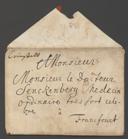 A Monsieur
Monsieur le Docteur
Senckenberg Medecin
ordinaire tres fort cele-
bre
Francfourt